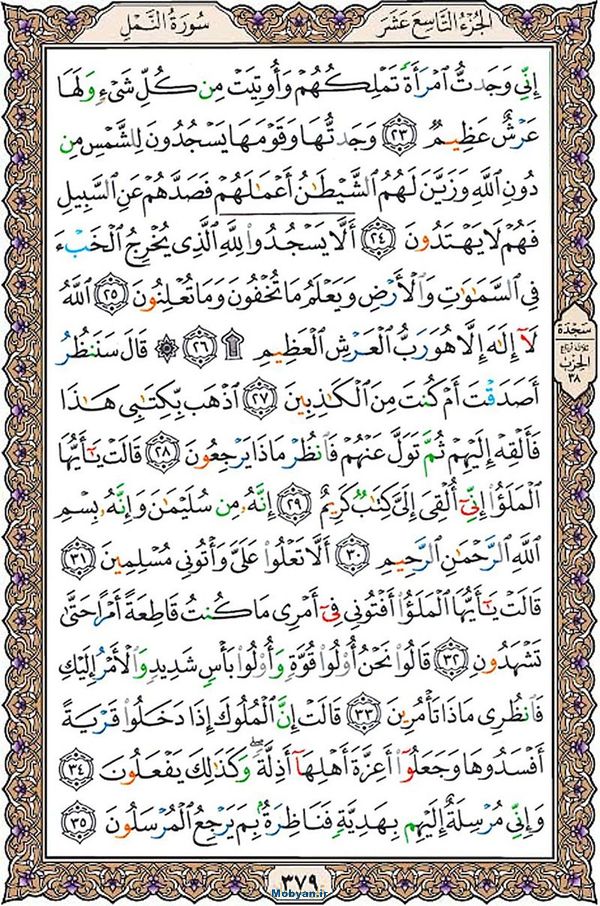 الجزء التاسع عشر
سورة النمل
إِنِّي وَجَدتُّ ٱمۡرَأَةٗ تَمۡلِكُهُمۡ وَأُوتِيَتۡ مِن كُلِّ شَيۡءٖ وَلَهَا
عَرۡشٌ عَظِيمٞ ٢٣ وَجَدتُّهَا وَقَوۡمَهَا يَسۡجُدُونَ لِلشَّمۡسِ مِن
دُونِ ٱللَّهِ وَزَيَّنَ لَهُمُ ٱلشَّيۡطَٰنُ أَعۡمَٰلَهُمۡ فَصَدَّهُمۡ عَنِ ٱلسَّبِيلِ
فَهُمۡ لَا يَهۡتَدُونَ ٢٤ أَلَّا يَسۡجُدُواْ لِلَّهِ ٱلَّذِي يُخۡرِجُ ٱلۡخَبۡءَ
فِي ٱلسَّمَٰوَٰتِ وَٱلۡأَرۡضِ وَيَعۡلَمُ مَا تُخۡفُونَ وَمَا تُعۡلِنُونَ ٢٥ ٱللَّهُ
لَآ إِلَٰهَ إِلَّا هُوَ رَبُّ ٱلۡعَرۡشِ ٱلۡعَظِيمِ ۩ ٢٦ ۞ قَالَ سَنَنظُرُ
أَصَدَقۡتَ أَمۡ كُنتَ مِنَ ٱلۡكَٰذِبِينَ ٢٧ ٱذۡهَب بِّكِتَٰبِي هَٰذَا
فَأَلۡقِهۡ إِلَيۡهِمۡ ثُمَّ تَوَلَّ عَنۡهُمۡ فَٱنظُرۡ مَاذَا يَرۡجِعُونَ ٢٨ قَالَتۡ يَٰٓأَيُّهَا
ٱلۡمَلَؤُاْ إِنِّيٓ أُلۡقِيَ إِلَيَّ كِتَٰبٞ كَرِيمٌ ٢٩ إِنَّهُۥ مِن سُلَيۡمَٰنَ وَإِنَّهُۥ بِسۡمِ
ٱللَّهِ ٱلرَّحۡمَٰنِ ٱلرَّحِيمِ ٣٠ أَلَّا تَعۡلُواْ عَلَيَّ وَأۡتُونِي مُسۡلِمِينَ ٣١
قَالَتۡ يَٰٓأَيُّهَا ٱلۡمَلَؤُاْ أَفۡتُونِي فِيٓ أَمۡرِي مَا كُنتُ قَاطِعَةً أَمۡرًا حَتَّىٰ
تَشۡهَدُونِ ٣٢ قَالُواْ نَحۡنُ أُوْلُواْ قُوَّةٖ وَأُوْلُواْ بَأۡسٖ شَدِيدٖ وَٱلۡأَمۡرُ إِلَيۡكِ
فَٱنظُرِي مَاذَا تَأۡمُرِينَ ٣٣ قَالَتۡ إِنَّ ٱلۡمُلُوكَ إِذَا دَخَلُواْ قَرۡيَةً
أَفۡسَدُوهَا وَجَعَلُوٓاْ أَعِزَّةَ أَهۡلِهَآ أَذِلَّةٗۚ وَكَذَٰلِكَ يَفۡعَلُونَ ٣٤
وَإِنِّي مُرۡسِلَةٌ إِلَيۡهِم بِهَدِيَّةٖ فَنَاظِرَةُۢ بِمَ يَرۡجِعُ ٱلۡمُرۡسَلُونَ ٣٥
سجدة
ثلاثة أرباع
الحزب
٣٨
٣٧٩
Mobyan.ir